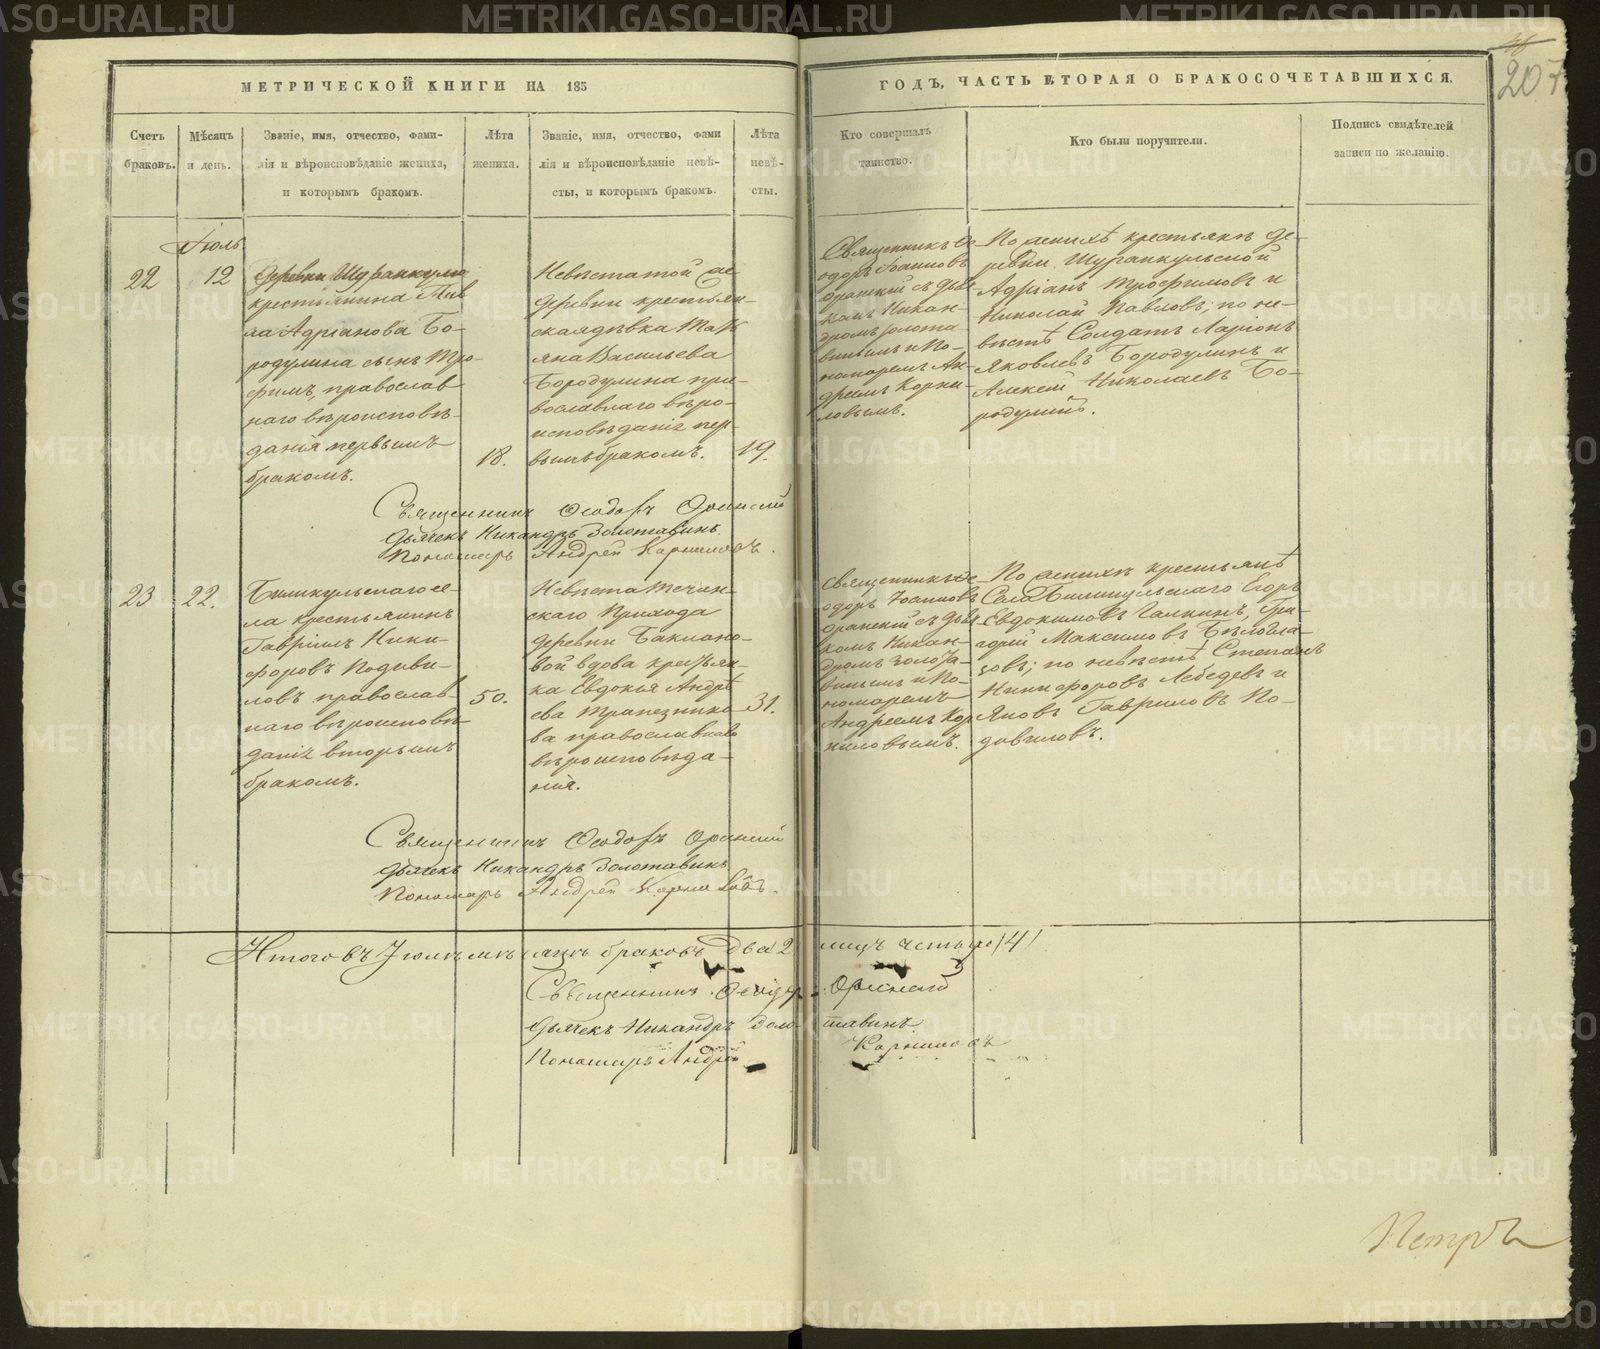 МЕТРИЧЕСКОЙ КНИГИ НА 185
ГОДЪ, ЧАСТЬ ВТОРАЯ О БРАКОСОЧЕТАВШИХСЯ.
207
Счетъ
браковъ.
Мѣсяцъ
и день.
Званіе, имя, отчество, фами-
лія и вѣроисповѣданіе жениха,
и которымъ бракомъ.
Лѣта
жениха.
Званіе, имя, отчество, фами
лія и вѣроисповѣданіе невѣ-
сты, и которымъ бракомъ.
Лѣта
невѣ-
сты.
Кто совершалъ
таинство.
Кто были поручители.
Подпись свидѣтелей
записи по желанію.
Іюль
22
12
Деревни Шуранкуль
крестьянина Пав
ла Адріанова Бо-
родулина сынъ Тро-
фимъ, православ
наго вѣроисповѣ-
данія первымъ
бракомъ.
18.
Невѣста той же
деревни крестьян-
ская дѣвка Тать
яна Васильева
Бородулина пра-
вославнаго вѣро-
исповѣданія пер-
вымъ бракомъ.
19.
Священникъ Ѳе-
одоръ Іоанновъ
съ дьяч
комъ Никан-
дромъ Золота
винымъ и По-
номаремъ Ан-
дреемъ Корни-
ловымъ.
По женихѣ крестьяне де-
ревни Шуранкульской
Адріанъ Трофимовъ и
Николай Павловъ; по не-
вѣстѣ Солдатъ Ларіонъ
Яковлевъ Бородулинъ и
Алексѣй Николаевъ Бо-
родулинъ.
Священникъ Ѳеодоръ
Дьячекъ Никандръ Золотавинъ
Пономарь Андрей Корниловъ.
23
22.
села крестьянинъ
Гавріилъ Ники-
форовъ
православ-
наго вѣроисповѣ-
данія вторымъ
бракомъ.
50.
Невѣста Течин-
скаго Прихода
деревни Баклано-
вой вдова крестьян-
ка Евдокья Андрѣ
ева Трапезнико-
ва православнаго
вѣроисповѣда-
нія.
31.
Священникъ Ѳе-
одоръ Іоанновъ
съ дьяч
комъ Никан-
дромъ Золота-
винымъ и По-
номаремъ
Андреемъ Кор
ниловымъ.
По женихѣ крестьяне
Села Егоръ
Евдокимовъ Галкинъ, Гри-
горій Максимовъ
по невѣстѣ Степанъ
Никифоровъ Лебедевъ и
Яковъ Гавриловъ По-
Священникъ Ѳеодоръ
Дьячекъ Никандръ Золотавинъ
Пономарь Андрей Корниловъ.
Итого въ Іюлѣ мѣсяцѣ браковъ два 2 лицъ четыре /4/
Священникъ Ѳеодоръ
Дьячекъ Никандръ Золотавинъ
Пономарь Андрей Корниловъ
Петръ
METRIKI.GASO-URAL.RU